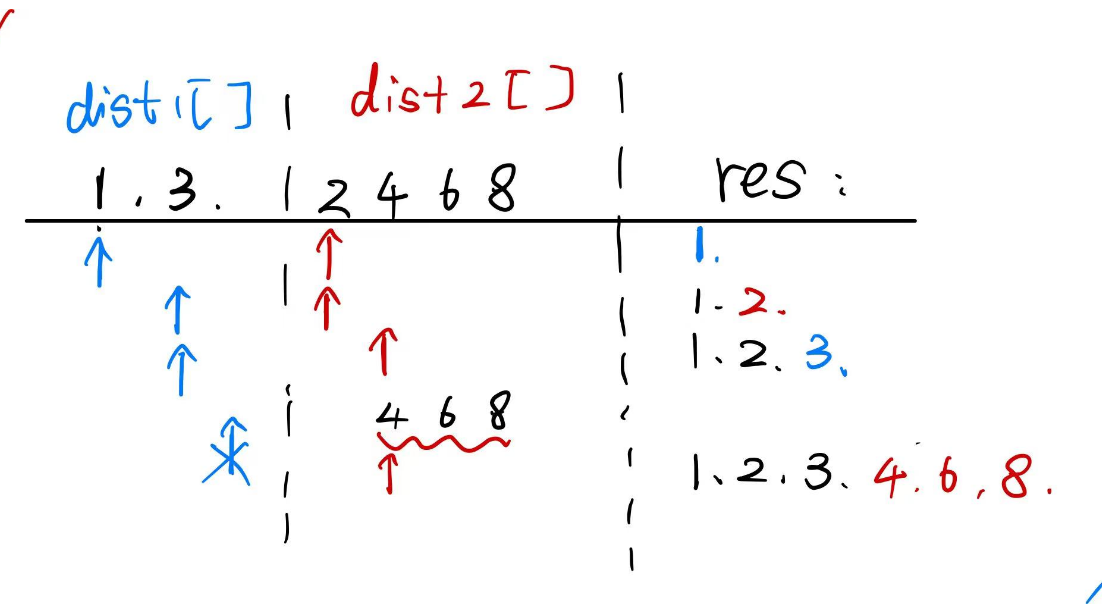 dist1[] dist2[]
1. 3. 2 4 6 8 res:
1.
1. 2.
1. 2. 3.
4 6 8
1. 2. 3. 4. 6. 8.